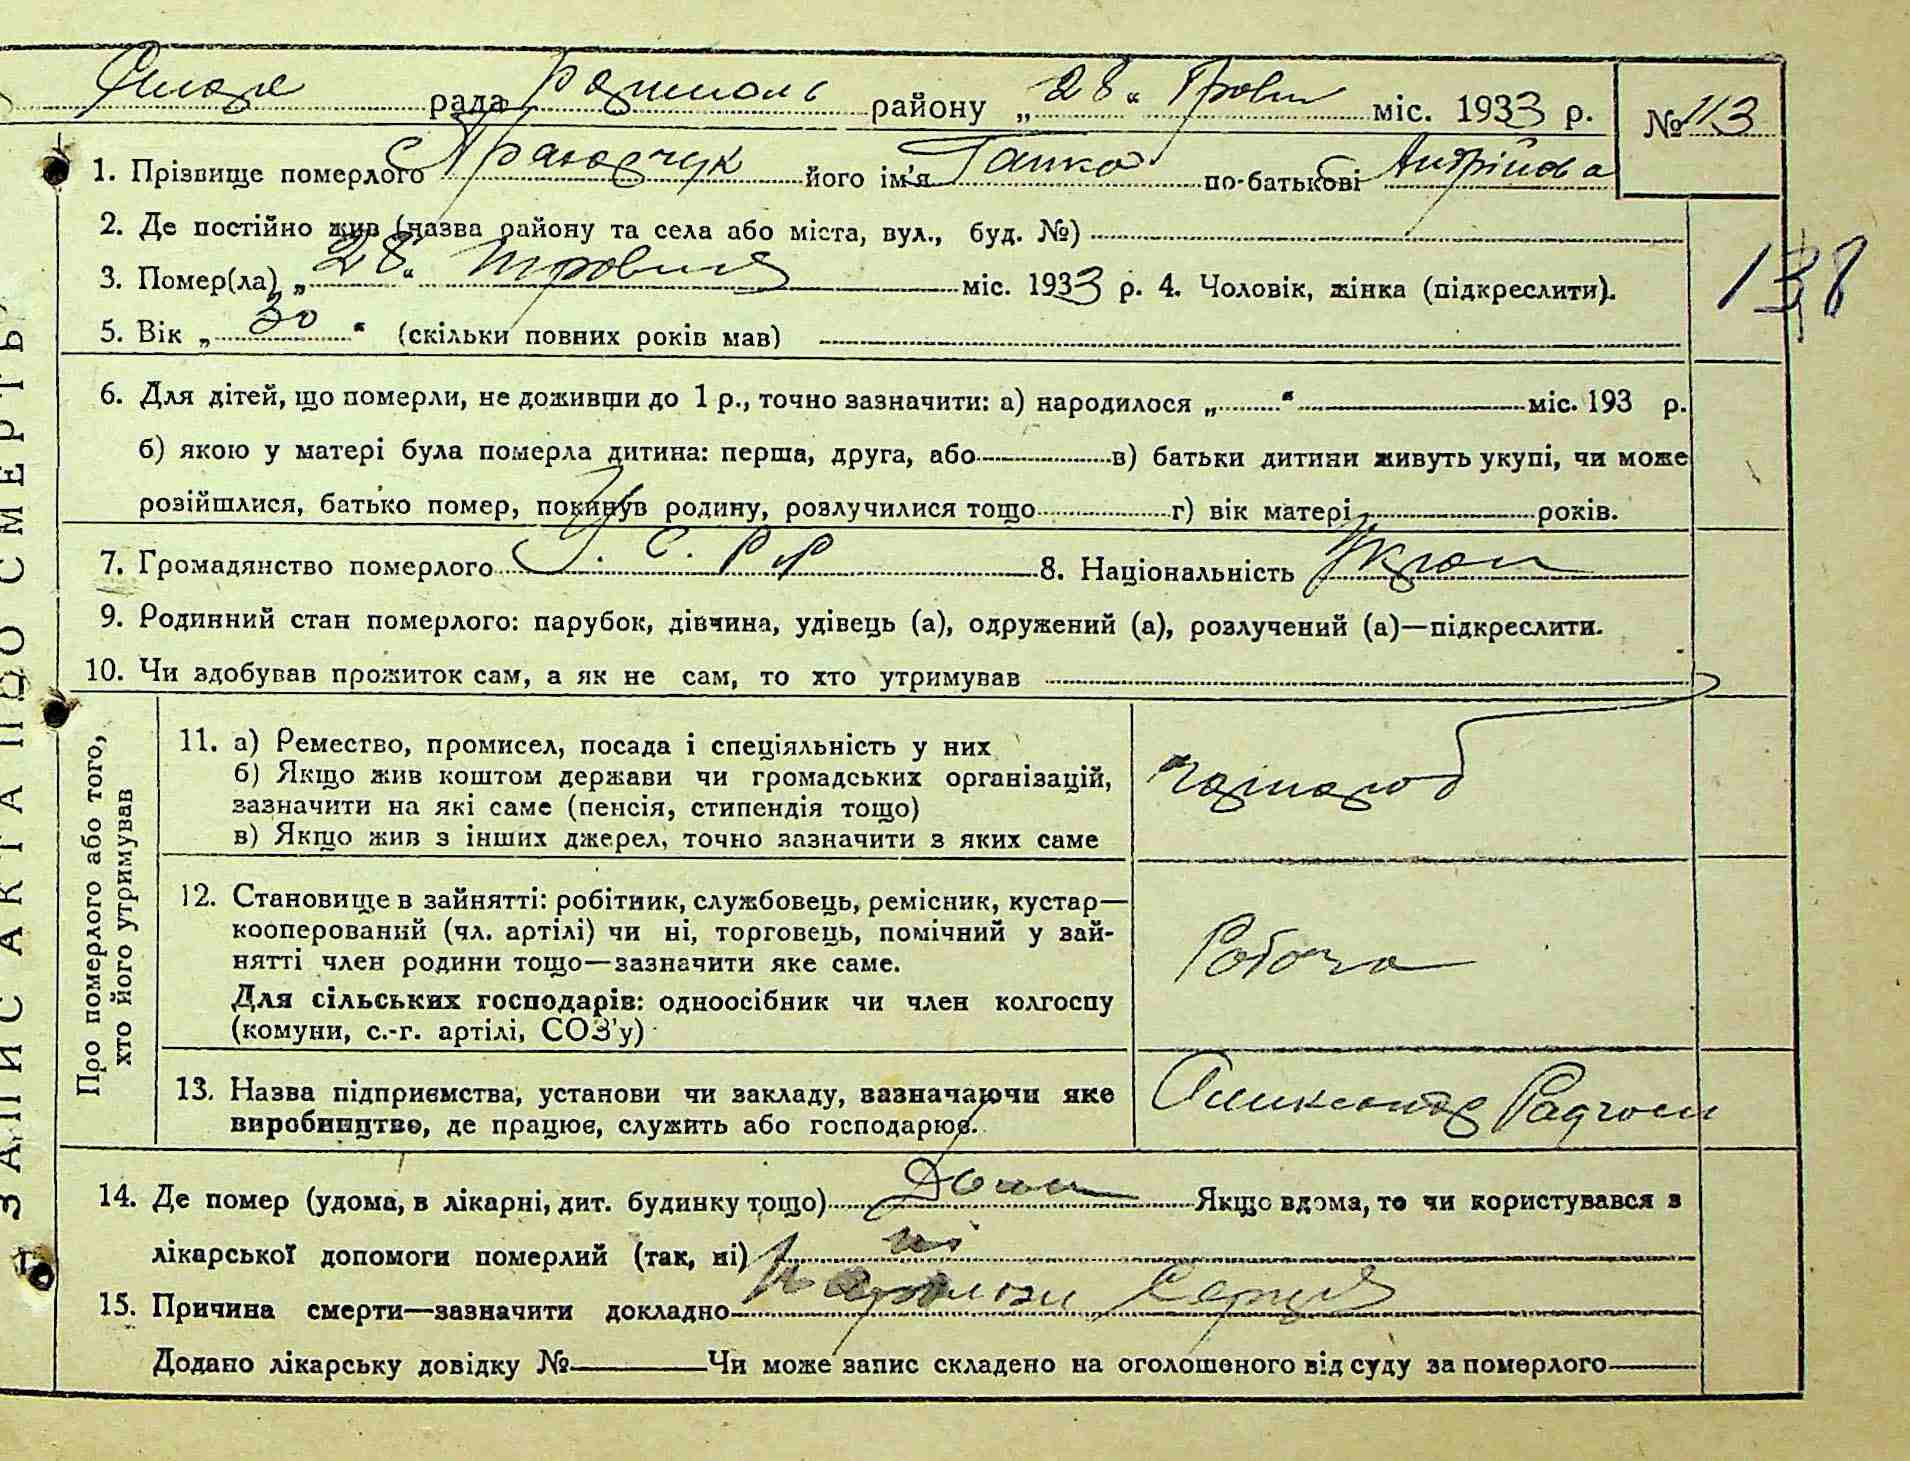 рада району „28“ міс. 1933 р. № 113
1. Прізвище померлого його ім'я Ганка по-батькові Андрійова
2. Де постійно жив (назва району та села або міста, вул., буд. №)
138
3. Помер(ла) „28“ травня міс. 1933 р. 4. Чоловік, жінка (підкреслити).
5. Вік „30“ (скільки повних років мав)
6. Для дітей, що померли, не доживши до 1 р., точно зазначити: а) народилося „ “ міс. 193 р.
б) якою у матері була померла дитина: перша, друга, або в) батьки дитини живуть укупі, чи може
розійшлися, батько помер, покинув родину, розлучилися тощо г) вік матері років.
7. Громадянство померлого У. С. Р Р 8. Національність Укра
9. Родинний стан померлого: парубок, дівчина, удівець (а), одружений (а), розлучений (а)—підкреслити.
10. Чи здобував прожиток сам, а як не сам, то хто утримував
ЗАПИС АКТА ПРО СМЕРТЬ
Про померлого або того,
хто його утримував
11. а) Ремество, промисел, посада і спеціяльність у них
б) Якщо жив коштом держави чи громадських організацій,
зазначити на які саме (пенсія, стипендія тощо)
в) Якщо жив з інших джерел, точно зазначити з яких саме
12. Становище в зайнятті: робітник, службовець, ремісник, кустар—
кооперований (чл. артілі) чи ні, торговець, помічний у зай-
нятті член родини тощо—зазначити яке саме.
Для сільських господарів: одноосібник чи член колгоспу
(комуни, с.-г. артілі, СОЗ'у)
Робоча
13. Назва підприємства, установи чи закладу, зазначаючи яке
виробництво, де працює, служить або господарює.
Радгосп
14. Де помер (удома, в лікарні, дит. будинку тощо) Дома Якщо вдома, то чи користувався з
лікарської допомоги померлий (так, ні) ні
15. Причина смерти—зазначити докладно Серця
Додано лікарську довідку № Чи може запис складено на оголошеного від суду за померлого